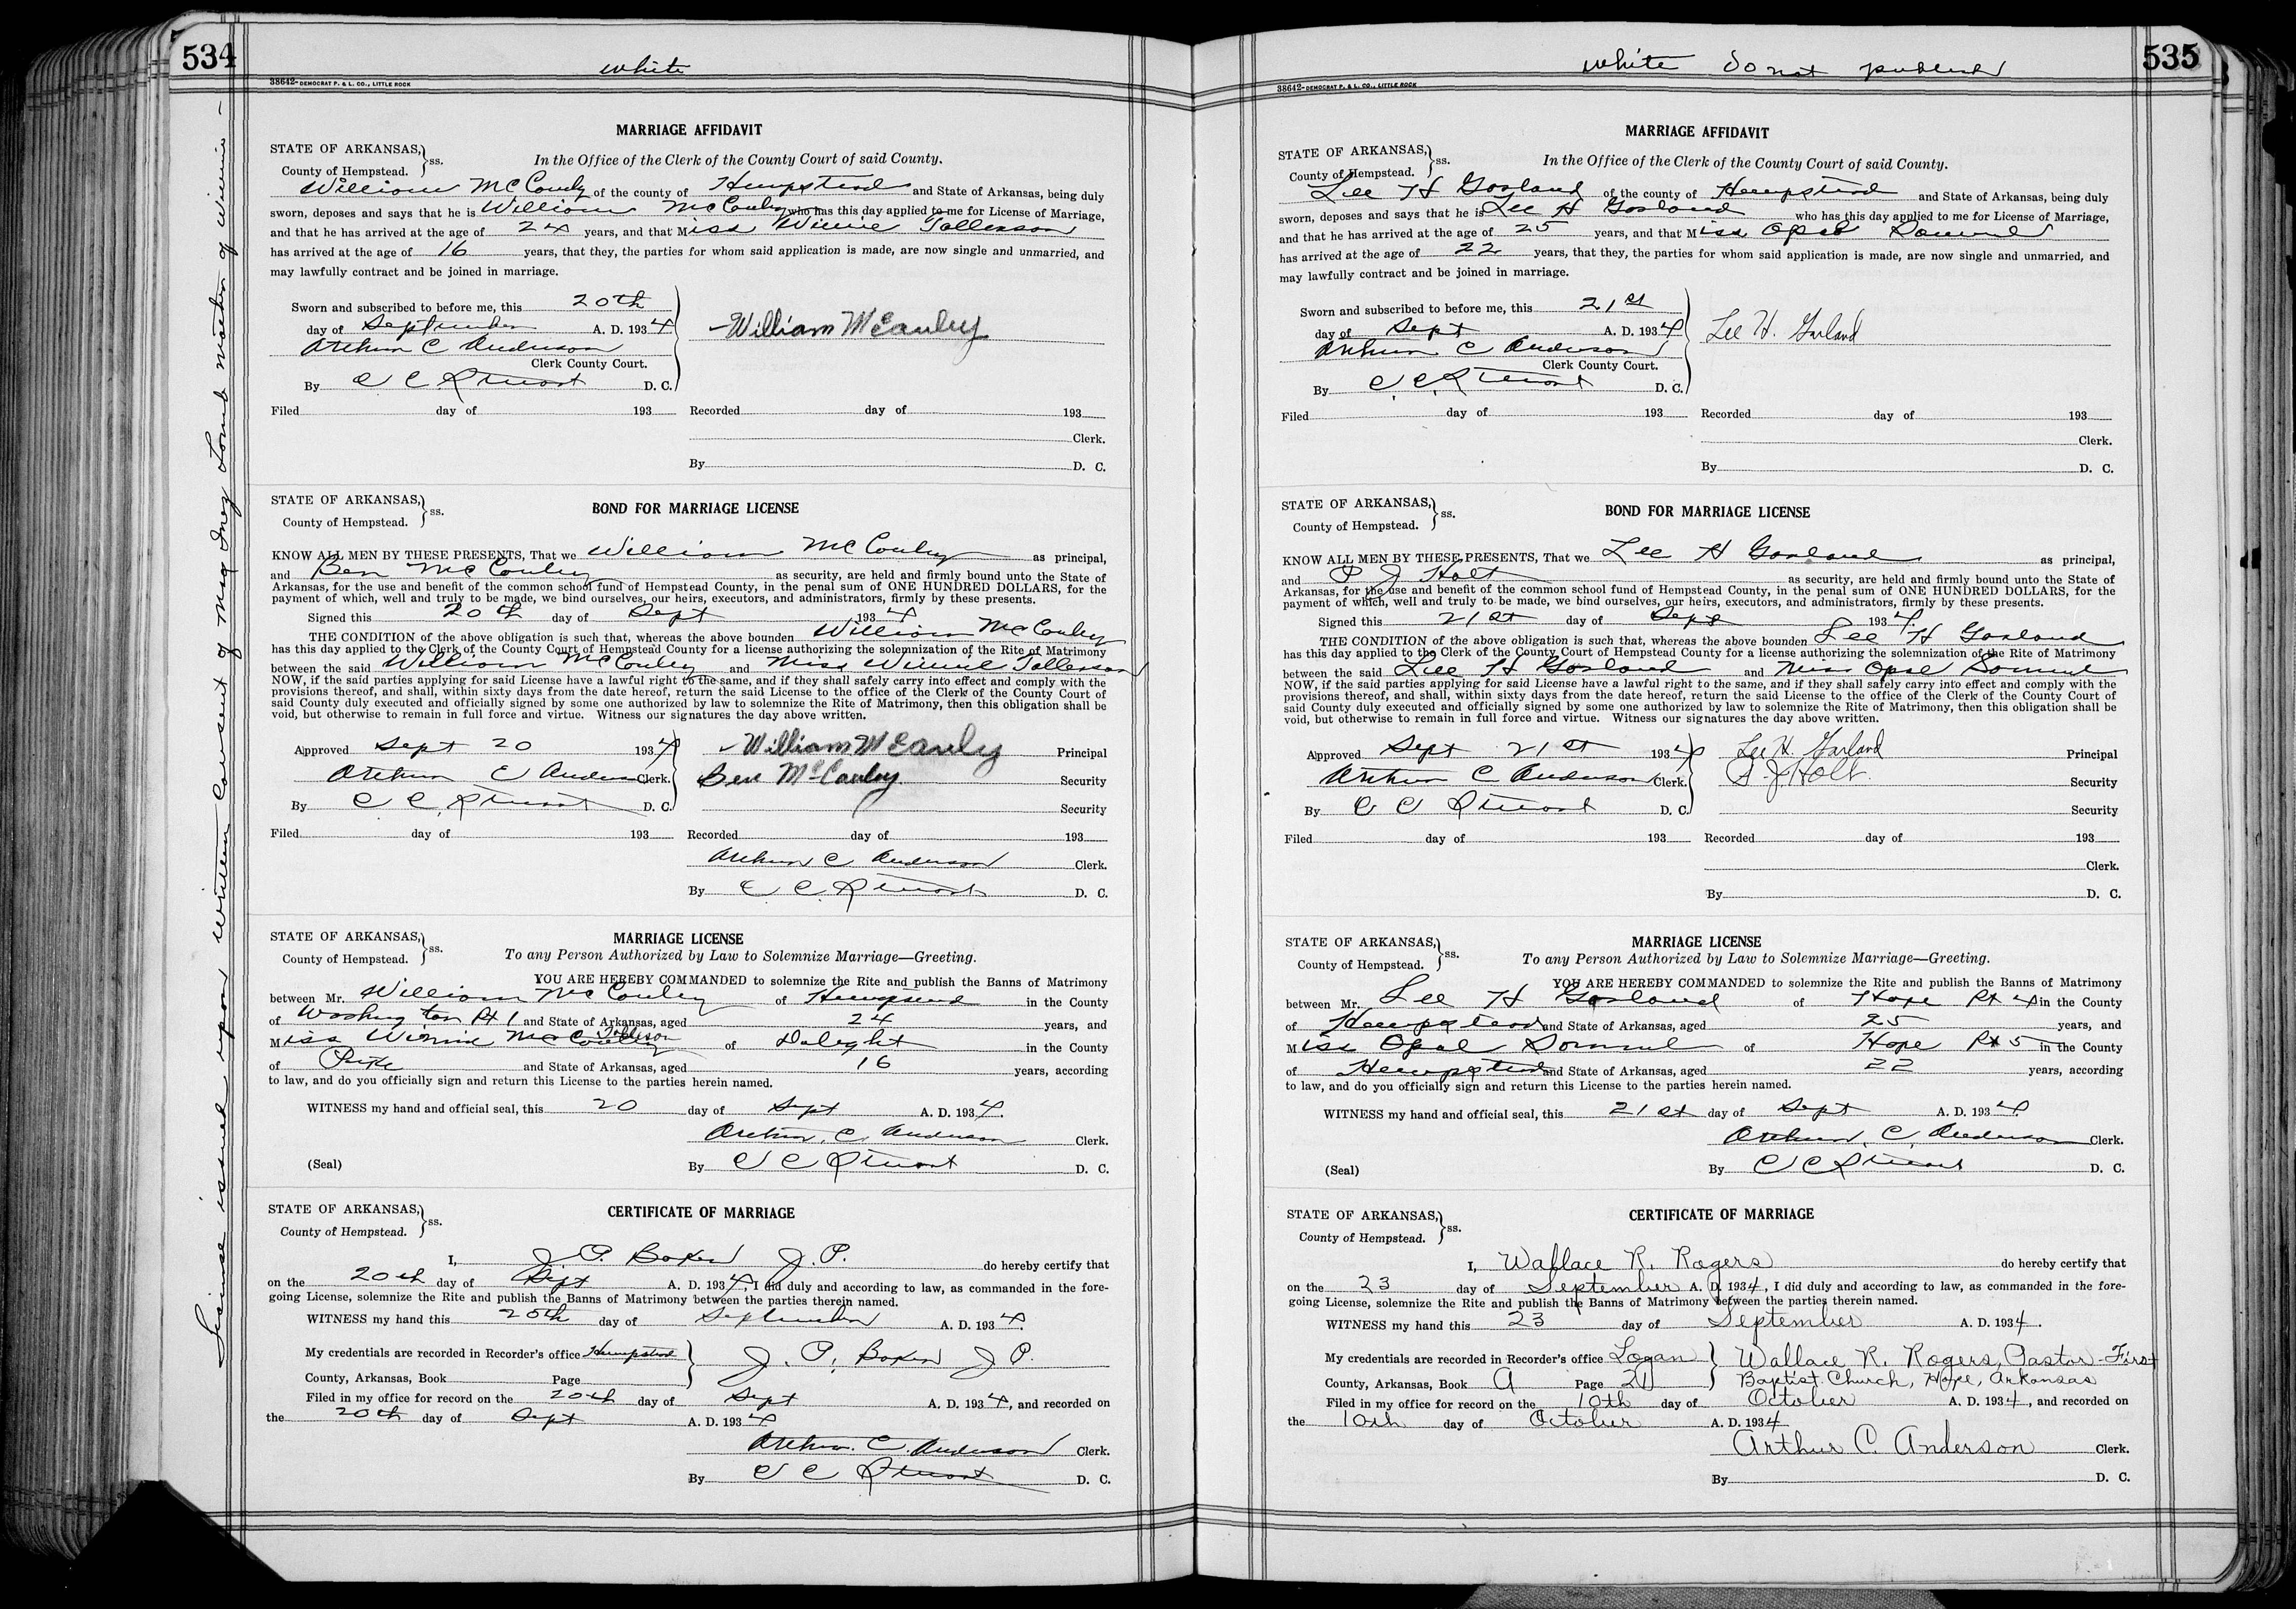 534
white
38642-DEMOCRAT P. & L. CO., LITTLE ROCK
License issued upon written consent of Mrs Inez Lomb mother of Winnie -
MARRIAGE AFFIDAVIT
STATE OF ARKANSAS,
County of Hempstead. } ss.
In the Office of the Clerk of the County Court of said County.
William McCauley of the county of Hempstead and State of Arkansas, being duly
sworn, deposes and says that he is William McCauley who has this day applied to me for License of Marriage,
and that he has arrived at the age of 24 years, and that Miss Winnie Tollerson
has arrived at the age of 16 years, that they, the parties for whom said application is made, are now single and unmarried, and
may lawfully contract and be joined in marriage.
Sworn and subscribed to before me, this 20th
day of September A. D. 1934
William McCauley
Arthur C Anderson
Clerk County Court.
By C C Stuart D. C.
Filed day of 193 Recorded day of 193
Clerk.
By D. C.
STATE OF ARKANSAS,
County of Hempstead. } ss.
BOND FOR MARRIAGE LICENSE
KNOW ALL MEN BY THESE PRESENTS, That we William McCauley as principal,
and Ben McCauley as security, are held and firmly bound unto the State of
Arkansas, for the use and benefit of the common school fund of Hempstead County, in the penal sum of ONE HUNDRED DOLLARS, for the
payment of which, well and truly to be made, we bind ourselves, our heirs, executors, and administrators, firmly by these presents.
Signed this 20th day of Sept 1934
THE CONDITION of the above obligation is such that, whereas the above bounden William McCauley
has this day applied to the Clerk of the County Court of Hempstead County for a license authorizing the solemnization of the Rite of Matrimony
between the said William McCauley and Miss Winnie Tollerson
NOW, if the said parties applying for said License have a lawful right to the same, and if they shall safely carry into effect and comply with the
provisions thereof, and shall, within sixty days from the date hereof, return the said License to the office of the Clerk of the County Court of
said County duly executed and officially signed by some one authorized by law to solemnize the Rite of Matrimony, then this obligation shall be
void, but otherwise to remain in full force and virtue. Witness our signatures the day above written.
Approved Sept 20 1934 William McCauley Principal
Arthur C Anderson Clerk. Ben McCauley Security
By C C Stuart D. C. Security
Filed day of 193 Recorded day of 193
Arthur C Anderson Clerk.
By C C Stuart D. C.
STATE OF ARKANSAS,
County of Hempstead. } ss.
MARRIAGE LICENSE
To any Person Authorized by Law to Solemnize Marriage—Greeting.
YOU ARE HEREBY COMMANDED to solemnize the Rite and publish the Banns of Matrimony
between Mr. William McCauley of Hempstead in the County
of Washington Rt 1 and State of Arkansas, aged 24 years, and
Miss Winnie McCauley Tollerson of Delight in the County
of Pike and State of Arkansas, aged 16 years, according
to law, and do you officially sign and return this License to the parties herein named.
WITNESS my hand and official seal, this 20 day of Sept A. D. 1934.
Arthur C. Anderson Clerk.
(Seal) By C C Stuart D. C.
STATE OF ARKANSAS,
County of Hempstead. } ss.
CERTIFICATE OF MARRIAGE
I, J. P. Baker J. P. do hereby certify that
on the 20th day of Sept A. D. 1934, I did duly and according to law, as commanded in the fore-
going License, solemnize the Rite and publish the Banns of Matrimony between the parties therein named.
WITNESS my hand this 20th day of September A. D. 1934.
My credentials are recorded in Recorder's office Hempstead J. P. Baker J P.
County, Arkansas, Book Page
Filed in my office for record on the 20th day of Sept A. D. 1934, and recorded on
the 20th day of Sept A. D. 1934
Arthur C. Anderson Clerk.
By C C Stuart D. C.
535
white do not publish
38642-DEMOCRAT P. & L. CO., LITTLE ROCK
MARRIAGE AFFIDAVIT
STATE OF ARKANSAS,
County of Hempstead. } ss.
In the Office of the Clerk of the County Court of said County.
Lee H Garland of the county of Hempstead and State of Arkansas, being duly
sworn, deposes and says that he is Lee H Garland who has this day applied to me for License of Marriage,
and that he has arrived at the age of 25 years, and that Miss Opal
has arrived at the age of 22 years, that they, the parties for whom said application is made, are now single and unmarried, and
may lawfully contract and be joined in marriage.
Sworn and subscribed to before me, this 21st
day of Sept A. D. 1934
Lee H. Garland
Arthur C Anderson
Clerk County Court.
By C. C. Stuart D. C.
Filed day of 193 Recorded day of 193
Clerk.
By D. C.
STATE OF ARKANSAS,
County of Hempstead. } ss.
BOND FOR MARRIAGE LICENSE
KNOW ALL MEN BY THESE PRESENTS, That we Lee H Garland as principal,
and P J Holt as security, are held and firmly bound unto the State of
Arkansas, for the use and benefit of the common school fund of Hempstead County, in the penal sum of ONE HUNDRED DOLLARS, for the
payment of which, well and truly to be made, we bind ourselves, our heirs, executors, and administrators, firmly by these presents.
Signed this 21st day of Sept 1934.
THE CONDITION of the above obligation is such that, whereas the above bounden Lee H Garland
has this day applied to the Clerk of the County Court of Hempstead County for a license authorizing the solemnization of the Rite of Matrimony
between the said Lee H Garland and Miss Opal
NOW, if the said parties applying for said License have a lawful right to the same, and if they shall safely carry into effect and comply with the
provisions thereof, and shall, within sixty days from the date hereof, return the said License to the office of the Clerk of the County Court of
said County duly executed and officially signed by some one authorized by law to solemnize the Rite of Matrimony, then this obligation shall be
void, but otherwise to remain in full force and virtue. Witness our signatures the day above written.
Approved Sept 21st 1934 Lee H. Garland Principal
Arthur C Anderson Clerk. P. J. Holt. Security
By C C Stuart D. C. Security
Filed day of 193 Recorded day of 193
Clerk.
By D. C.
STATE OF ARKANSAS,
County of Hempstead. } ss.
MARRIAGE LICENSE
To any Person Authorized by Law to Solemnize Marriage—Greeting.
YOU ARE HEREBY COMMANDED to solemnize the Rite and publish the Banns of Matrimony
between Mr. Lee H Garland of Hope Rt 4 in the County
of Hempstead and State of Arkansas, aged 25 years, and
Miss Opal of Hope Rt 5 in the County
of Hempstead and State of Arkansas, aged 22 years, according
to law, and do you officially sign and return this License to the parties herein named.
WITNESS my hand and official seal, this 21st day of Sept A. D. 1934.
Arthur. C. Anderson Clerk.
(Seal) By C C Stuart D. C.
STATE OF ARKANSAS,
County of Hempstead. } ss.
CERTIFICATE OF MARRIAGE
I, Wallace R. Rogers do hereby certify that
on the 23 day of September A. D. 1934, I did duly and according to law, as commanded in the fore-
going License, solemnize the Rite and publish the Banns of Matrimony between the parties therein named.
WITNESS my hand this 23 day of September A. D. 1934.
My credentials are recorded in Recorder's office Logan Wallace R. Rogers, Pastor-First
County, Arkansas, Book A Page 21 Baptist Church, Hope, Arkansas
Filed in my office for record on the 10th day of October A. D. 1934, and recorded on
the 10th day of October A. D. 1934
Arthur C. Anderson Clerk.
By D. C.